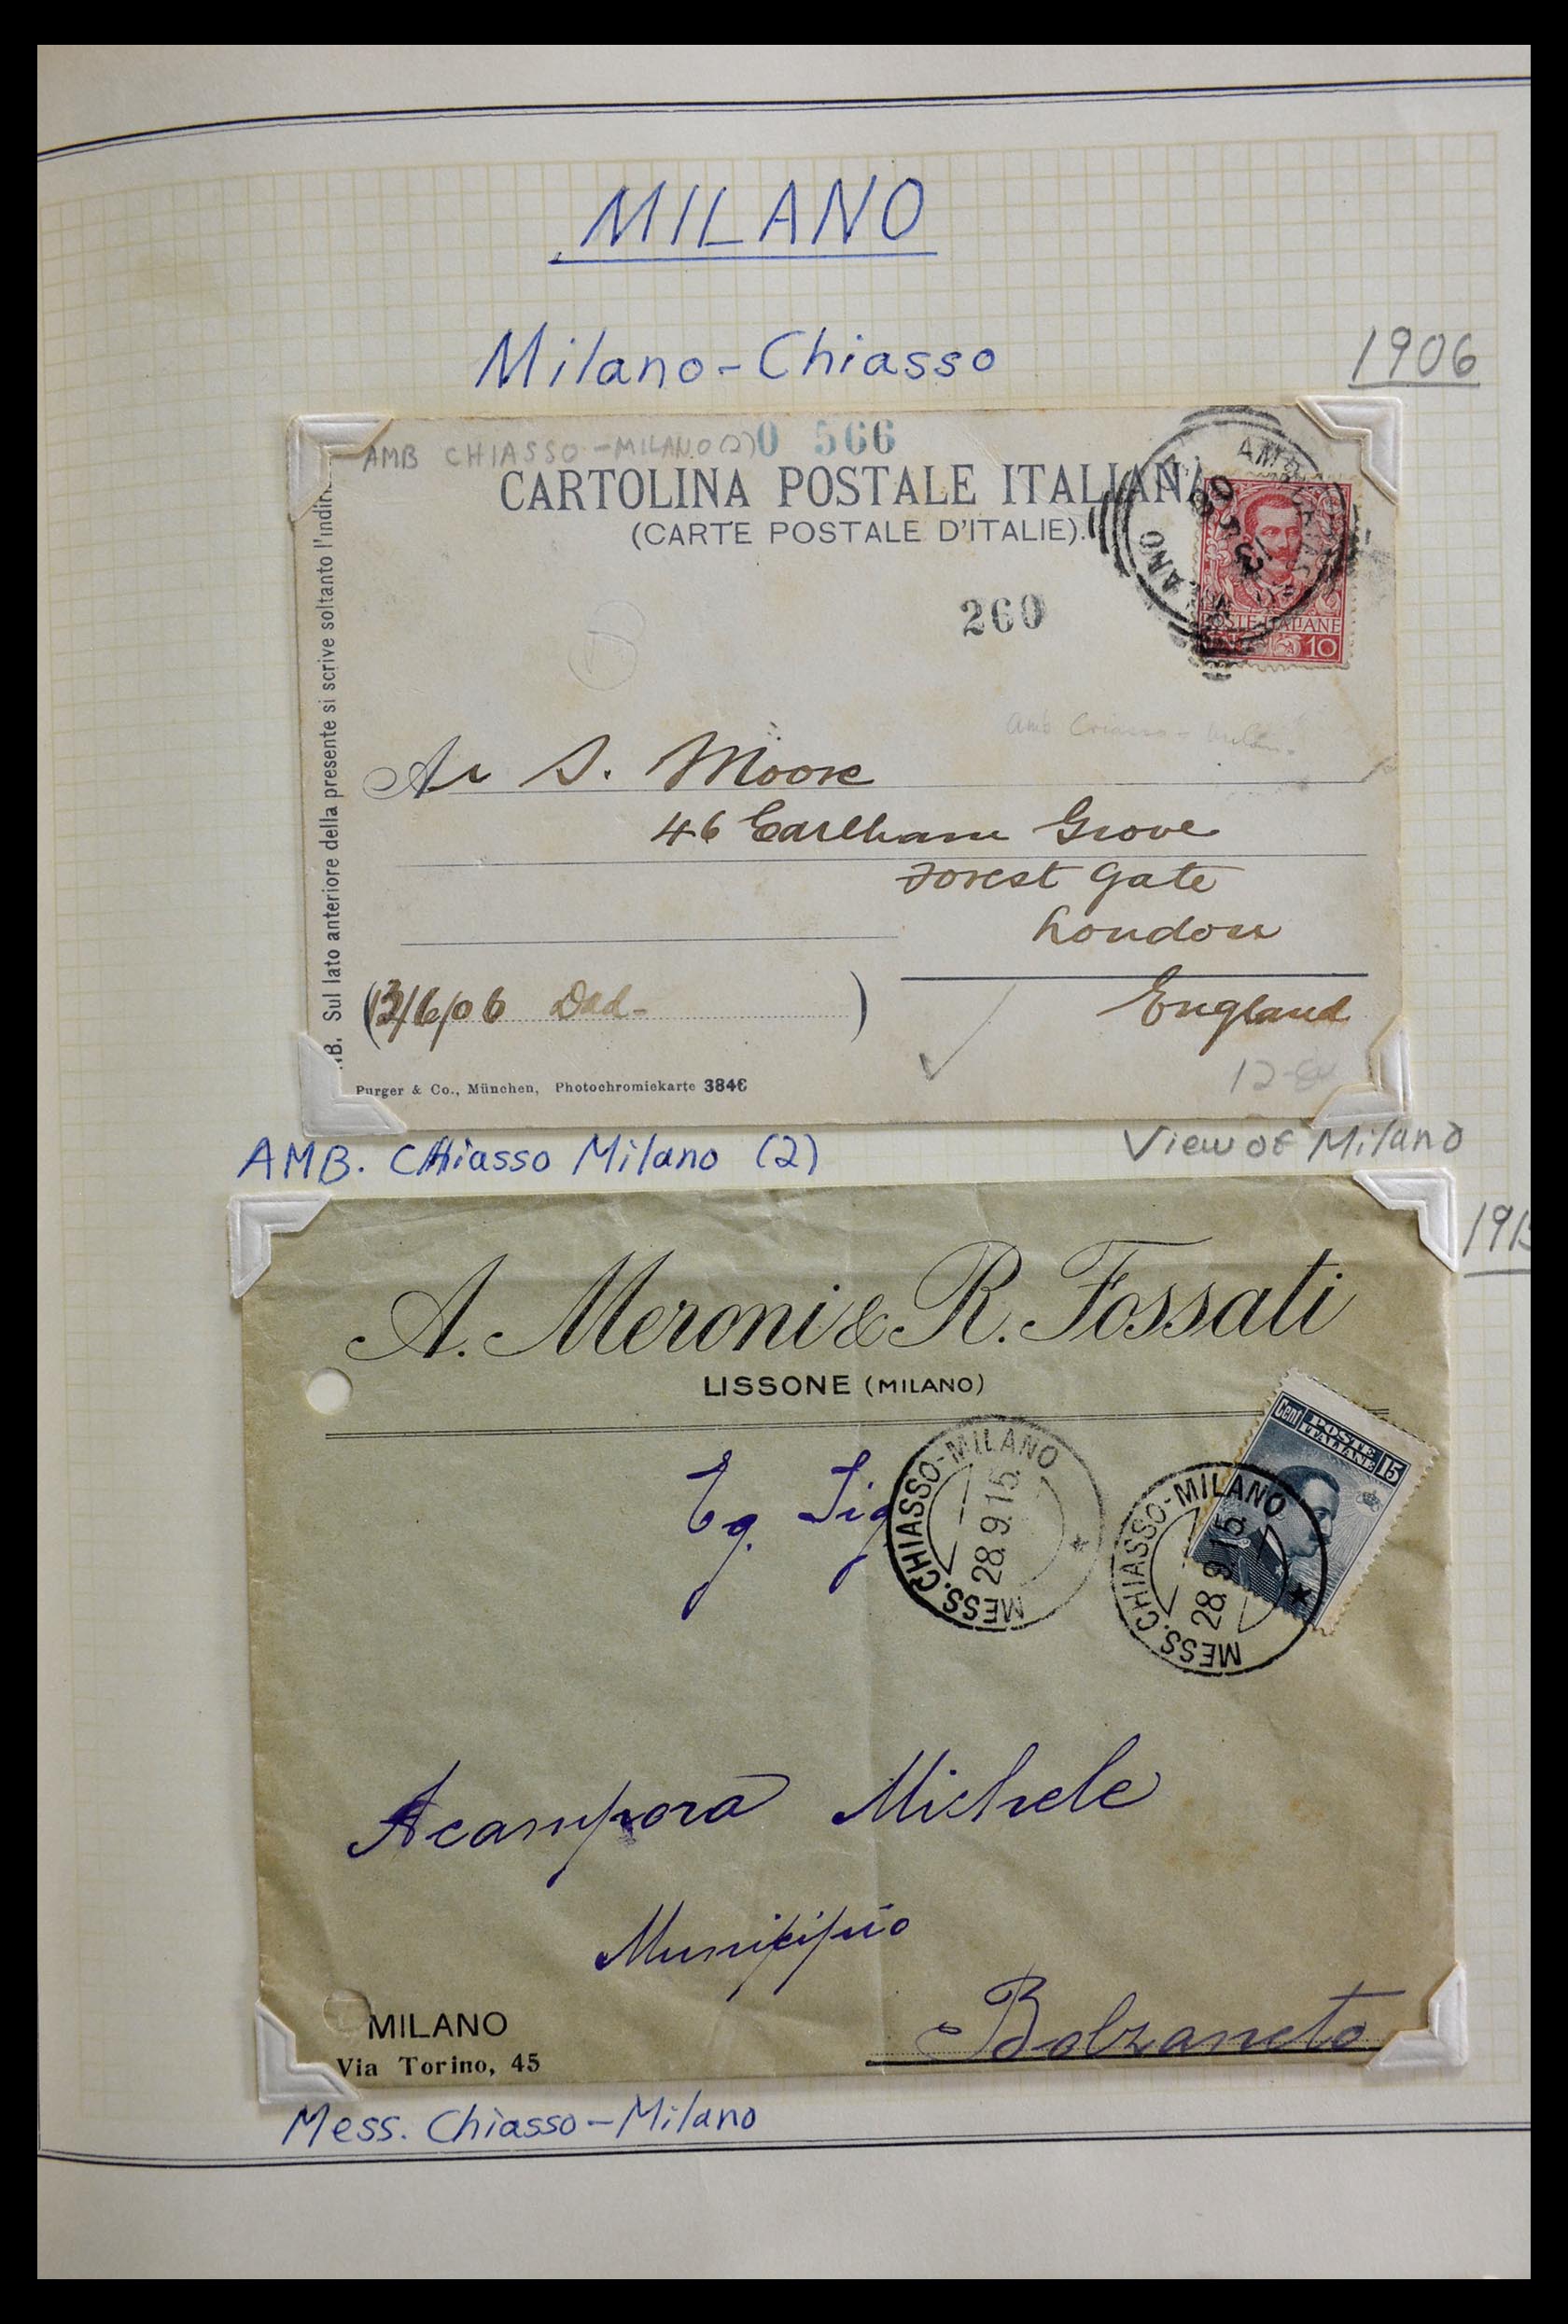 MILANO
Milano-Chiasso
1906
AMB CHIASSO-MILANO (2)
0 566
CARTOLINA POSTALE ITALIANA
(CARTE POSTALE D'ITALIE).
260
POSTE ITALIANE
10
Amb
B. Sul lato anteriore della presente si scrive soltanto l'indiri
S. Moore
46 Earlham Grove
Forest Gate
London
England
(13/6/06 Dad-)
Purger & Co., München, Photochromiekarte 3846
AMB. Chiasso Milano (2)
View of Milano
1915
A. Meroni & R. Fossati
LISSONE (MILANO)
Cent POSTE ITALIANE 15
Eg. Sig
MESS. CHIASSO-MILANO
28.9.15.
MESS. CHIASSO-MILANO
28.9.15.
Acampora Michele
Municipio
Bolzaneto
MILANO
Via Torino, 45
Mess. Chiasso-Milano